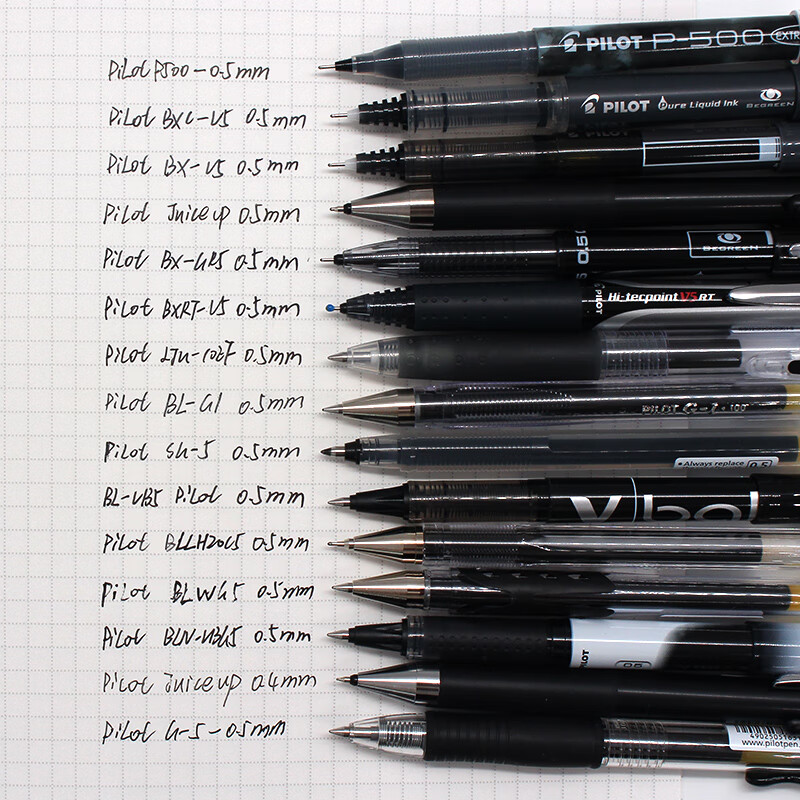 Pilot P500-0.5mm
PILOT P-500 EXTR
Pilot BXC-V5 0.5mm
PILOT Pure Liquid Ink BEGREEN
Pilot BX-V5 0.5mm
Pilot Juice up 0.5mm
Pilot BX-GR5 0.5mm
0.5 BEGREEN
Pilot BXRT-V5 0.5mm
PILOT Hi-tecpoint V5 RT
Pilot 0.5mm
Pilot BL-G1 0.5mm
PILOT G-1 100
Pilot SH-5 0.5mm
•Always replace 0.5
BL-VB5 Pilot 0.5mm
V bal
Pilot BLLH20C5 0.5mm
Pilot BLWG5 0.5mm
Pilot BLN-VBG5 0.5mm
PILOT 05
Pilot Juice up 0.4mm
Pilot G-5-0.5mm
www.pilotpen.